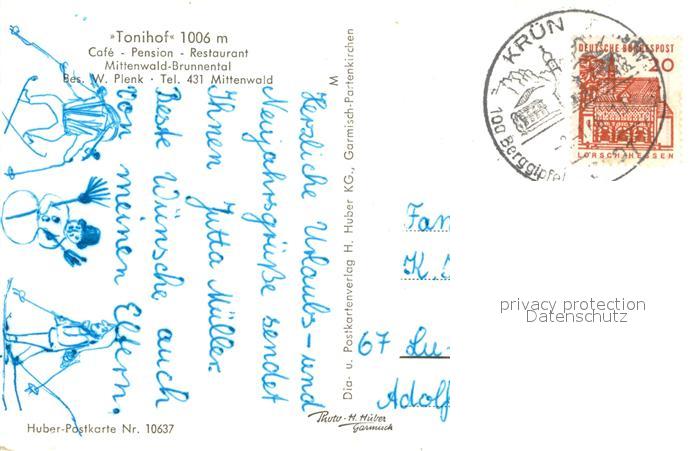 »Tonihof« 1006 m
Café - Pension - Restaurant
Mittenwald-Brunnental
Bes. W. Plenk · Tel. 431 Mittenwald
Herzliche Urlaubs- und
Neujahrsgrüße sendet
Ihnen Jutta Müller.
Beste Wünsche auch
von meinen Eltern.
Huber-Postkarte Nr. 10637
Dia- u. Postkartenverlag H. Huber KG., Garmisch-Partenkirchen
M
Photo-H. Huber
Garmisch
KRÜN
100 Berggipfel
DEUTSCHE BUNDESPOST
20
LORSCH/HESSEN
Fam
K.
67 Lu-
Adolf
privacy protection
Datenschutz